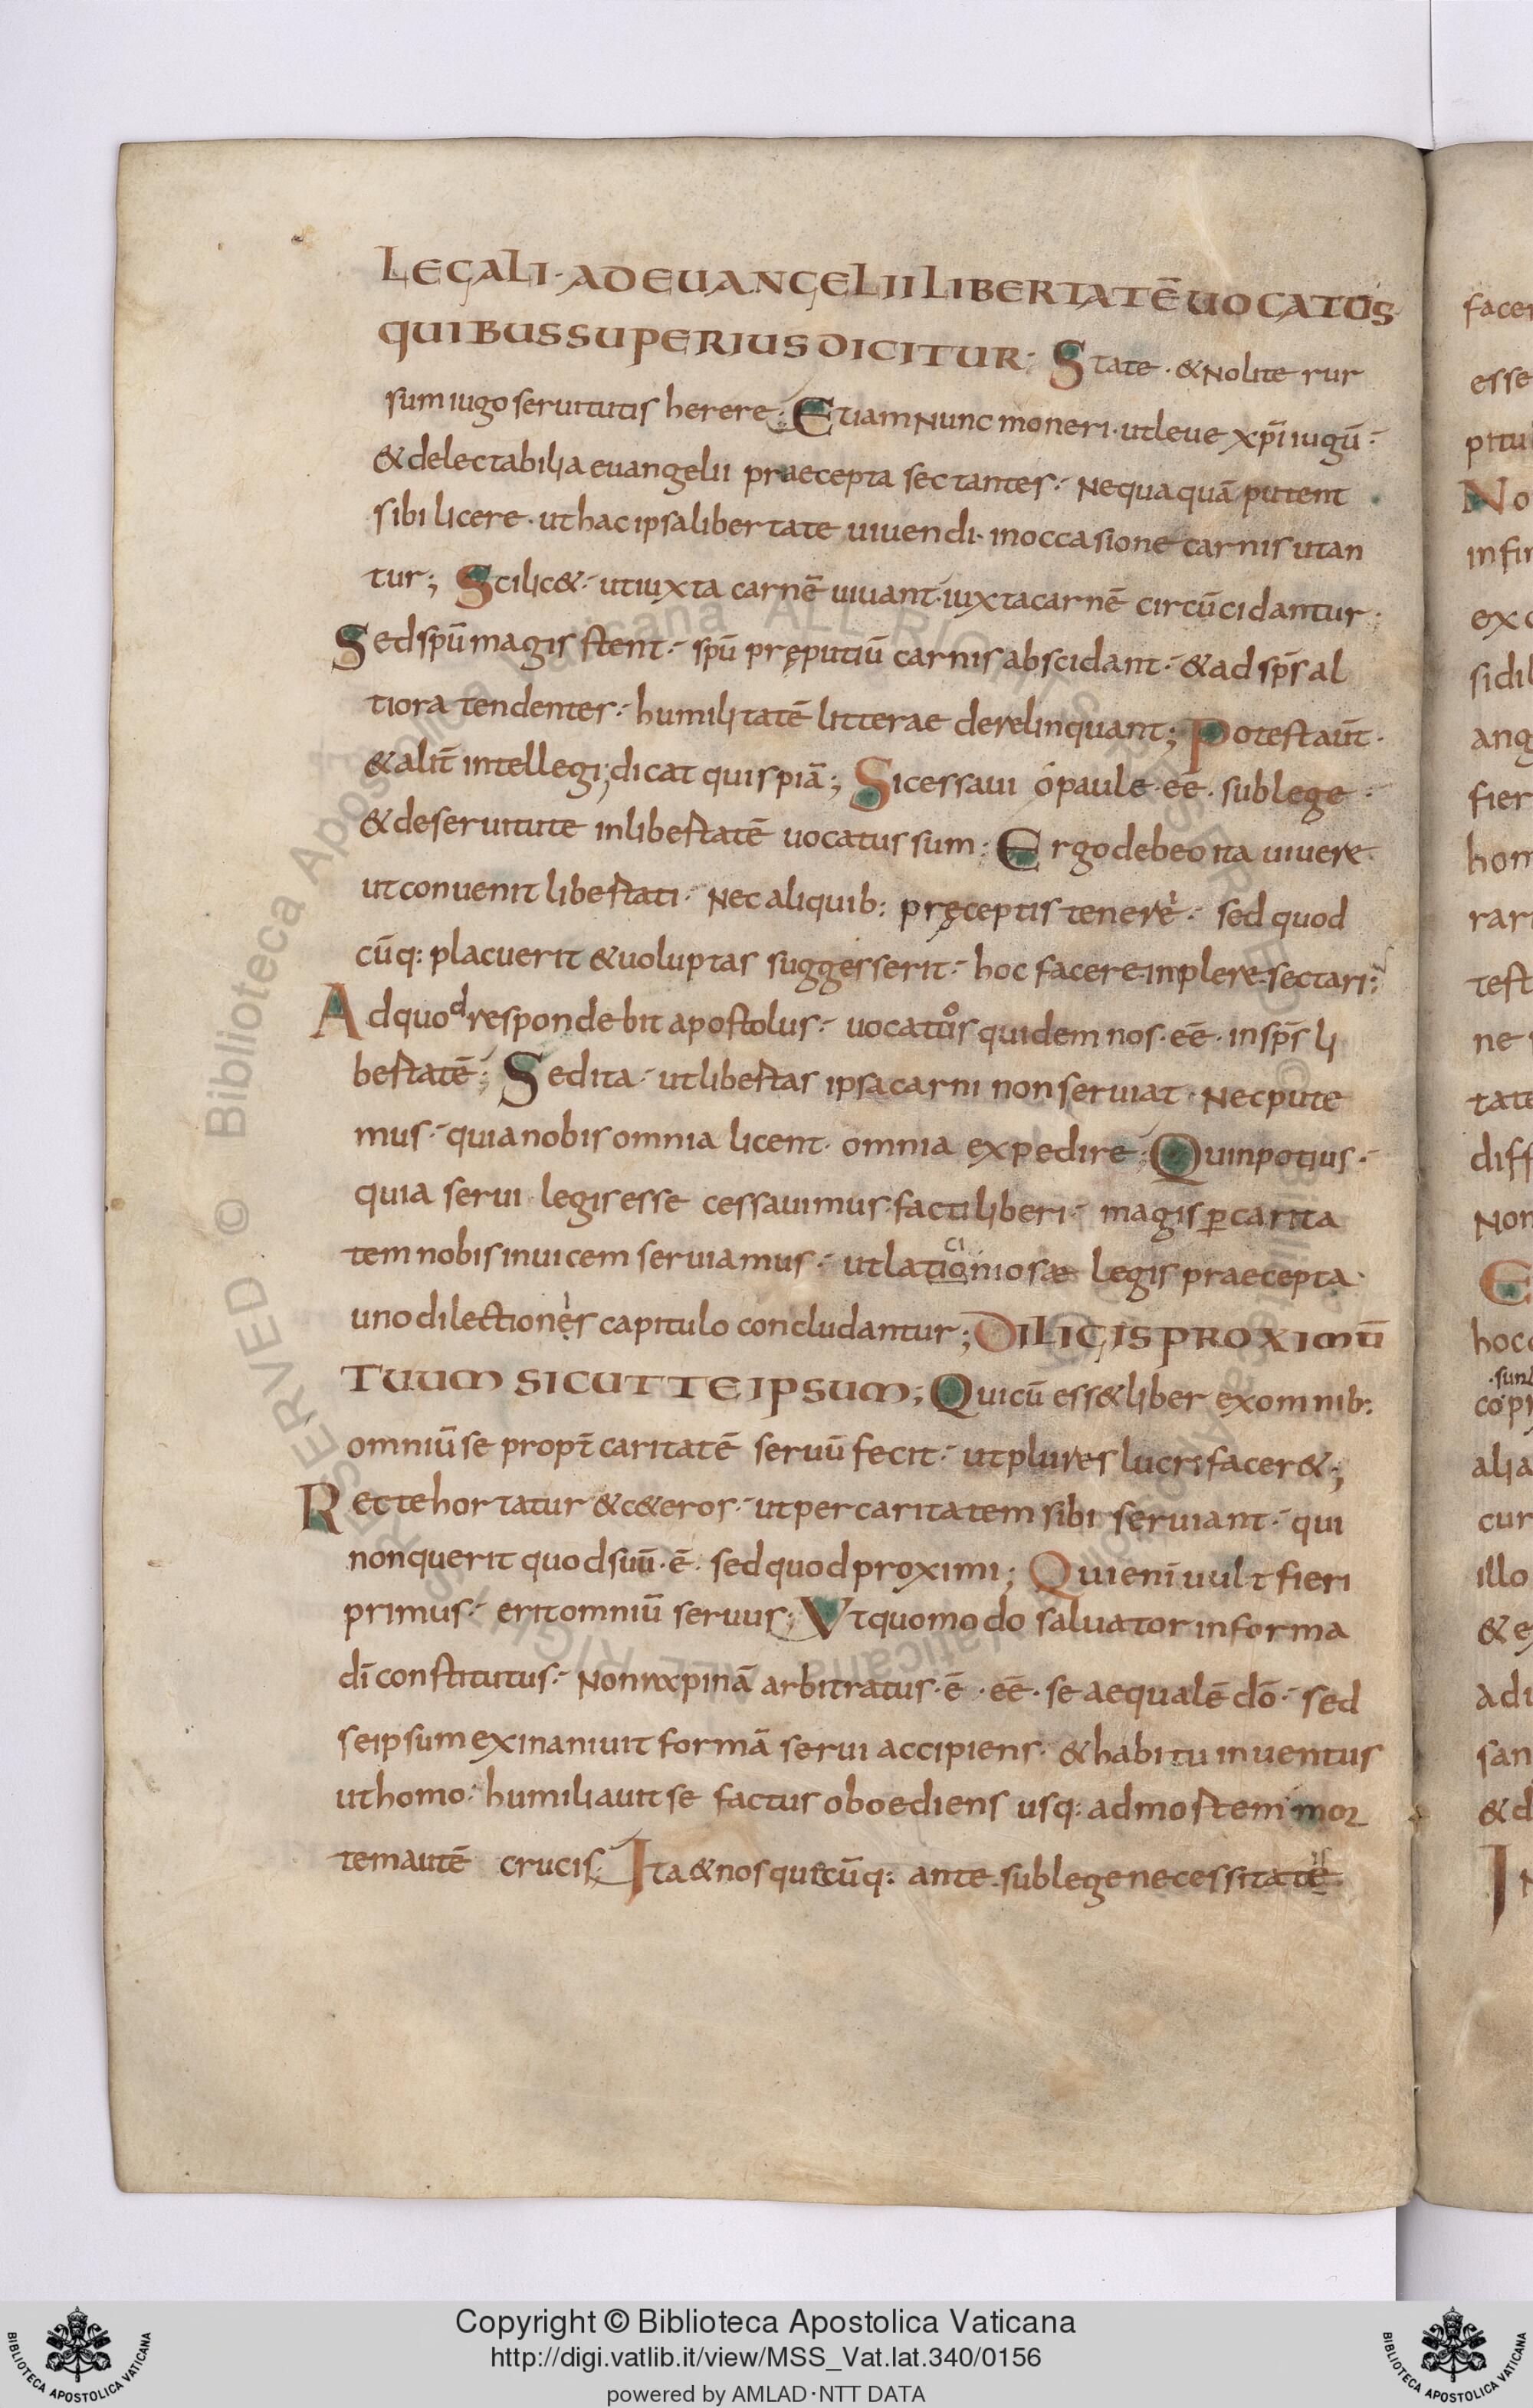 LEGALI· AD EUANGELII LIBERTATĒ UOCATUS·
QUIBUS SUPERIUS DICITUR· State · & Nolite rur
sum iugo seruitutis herere; Etiam Nunc moneri · ut leue xp̄i iugū ·
& delectabilia euangelii praecepta sectantes · Nequaquā putent
sibi licere · ut hac ipsa libertate uiuendi · in occasione carnis utan
tur; Scilic& · ut iuxta carnē uiuant · iuxta carnē circūcidantur;
Sed spū magis stent · spū pręputiū carnis abscidant · & ad sp̄s al
tiora tendentes · humilitatē litterae derelinquant; Potest aūt ·
& alit̄ intellegi; dicat quispiā; Si cessaui ó paule · eē · sub lege ·
& de seruitute in libertatē uocatus sum; Ergo debeo ita uiuere ·
ut conuenit libertati · Nec aliquib: pręceptis tenere · sed quod
cūq: placuerit & uoluptas suggesserit · hoc facere inplere sectari;
Ad quod respondebit apostolus · uocatos quidem nos · eē · in sp̄s li
bertatē; Sed ita · ut libertas ipsa carni non seruiat · Nec pute
mus · quia nobis omnia licent · omnia expedire; Quin potius ·
quia serui legis esse cessauimus · facti liberi · magis ꝑ carita
tem nobis inuicem seruiamus · ut lationiosae legis praecepta ·
uno dilectionis capitulo concludantur; DILIGIS PROXIMŪ
TUUM SICUT TEIPSUM; Qui cū ess& liber ex omnib:
omniū se propt̄ caritatē seruū fecit · ut plures lucrifacer&;
Recte hortatur & c&eros · ut per caritatem sibi seruiant · qui
non querit quod suū · ē · sed quod proximi; Qui eni̅ uult fieri
primus · erit omniū seruus; Vt quomodo saluator in forma
dī constitutus · Non rapinā arbitratus · ē · eē · se aequalē dō · sed
seipsum exinaniuit formā serui accipiens · & habitu inuentus
ut homo · humiliauit se factus oboediens usq: ad mortem mor
tem autē crucis; Ita & nos quicūq: ante sub lege necessitate
Copyright © Biblioteca Apostolica Vaticana
http://digi.vatlib.it/view/MSS_Vat.lat.340/0156
powered by AMLAD·NTT DATA